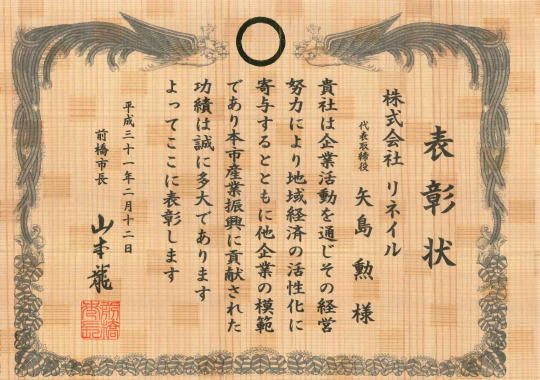 表彰状
株式会社 リネイル
代表取締役 矢島勲様
貴社は企業活動を通じその経営
努力により地域経済の活性化に
寄与するとともに他企業の模範
であり本市産業振興に貢献された
功績は誠に多大であります
よってここに表彰します
平成三十一年二月十二日
前橋市長 山本龍